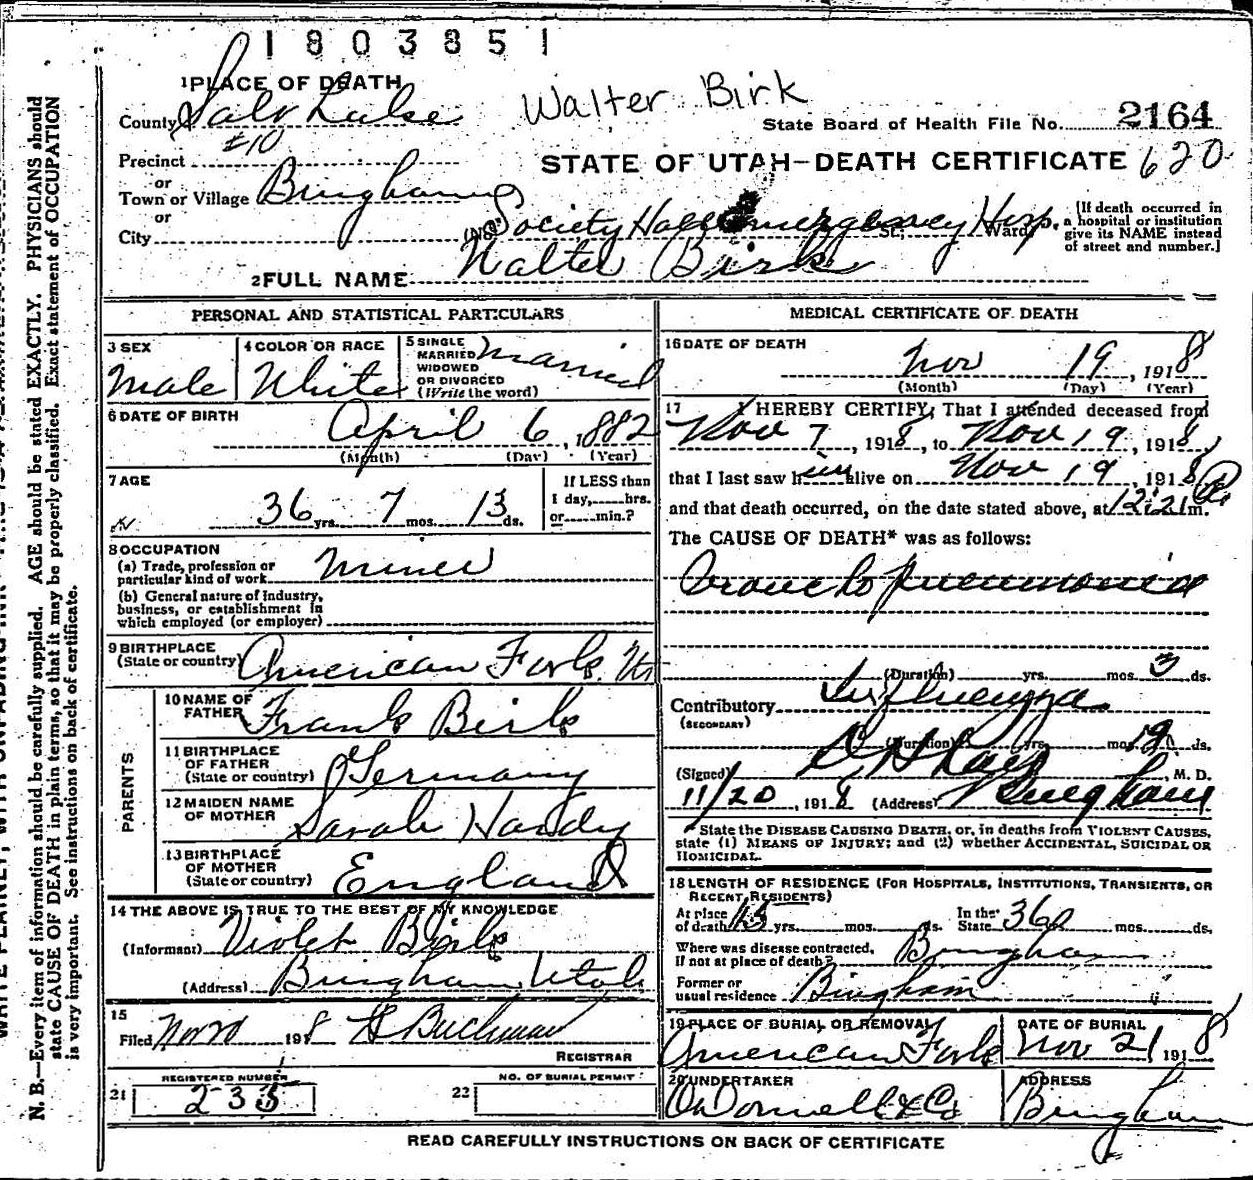 1803851
1 PLACE OF DEATH
County Salt Lake
Walter Birk
State Board of Health File No. 2164
Precinct #10
STATE OF UTAH—DEATH CERTIFICATE 620
or
Town or Village Bingham
or
City (No. Society Hall Emergency Hosp. St.; Ward)
[If death occurred in a hospital or institution give its NAME instead of street and number.]
2 FULL NAME Walter Birk
PERSONAL AND STATISTICAL PARTICULARS
3 SEX
Male
4 COLOR OR RACE
White
5 SINGLE
MARRIED
WIDOWED
OR DIVORCED
(Write the word)
Married
6 DATE OF BIRTH
April 6, 1882
(Month) (Day) (Year)
7 AGE
36 yrs. 7 mos. 13 ds.
If LESS than
1 day, hrs.
or min.?
8 OCCUPATION
(a) Trade, profession or
particular kind of work Miner
(b) General nature of industry,
business, or establishment in
which employed (or employer)
9 BIRTHPLACE
(State or country) American Fork, Ut
PARENTS
10 NAME OF
FATHER Frank Birk
11 BIRTHPLACE
OF FATHER
(State or country) Germany
12 MAIDEN NAME
OF MOTHER Sarah Handy
13 BIRTHPLACE
OF MOTHER
(State or country) England
14 THE ABOVE IS TRUE TO THE BEST OF MY KNOWLEDGE
(Informant) Violet Birk
(Address) Bingham Utah
15
Filed Nov 20 1918
REGISTRAR
REGISTERED NUMBER
21 235
NO. OF BURIAL PERMIT
22
MEDICAL CERTIFICATE OF DEATH
16 DATE OF DEATH
Nov 19, 1918
(Month) (Day) (Year)
17 I HEREBY CERTIFY, That I attended deceased from
Nov 7, 1918, to Nov 19, 1918,
that I last saw him alive on Nov 19, 1918,
and that death occurred, on the date stated above, at 12:21 P m.
The CAUSE OF DEATH* was as follows:
Broncho pneumonia
(Duration) yrs. mos. 3 ds.
Contributory Influenza
(SECONDARY)
(Duration) yrs. mos. ds.
(Signed) , M. D.
11/20, 1918 (Address) Bingham
*State the DISEASE CAUSING DEATH, or, in deaths from VIOLENT CAUSES,
state (1) MEANS OF INJURY; and (2) whether ACCIDENTAL, SUICIDAL OR
HOMICIDAL.
18 LENGTH OF RESIDENCE (FOR HOSPITALS, INSTITUTIONS, TRANSIENTS, OR
RECENT RESIDENTS)
At place
of death 15 yrs. mos. ds.
In the
State 36 mos. ds.
Where was disease contracted,
if not at place of death? Bingham
Former or
usual residence Bingham
19 PLACE OF BURIAL OR REMOVAL
American Fork
DATE OF BURIAL
Nov 21 1918
20 UNDERTAKER
O'Donnell & Co
ADDRESS
Bingham
READ CAREFULLY INSTRUCTIONS ON BACK OF CERTIFICATE
N. B.—Every item of information should be carefully supplied. AGE should be stated EXACTLY. PHYSICIANS should
state CAUSE OF DEATH in plain terms, so that it may be properly classified. Exact statement of OCCUPATION
is very important. See instructions on back of certificate.